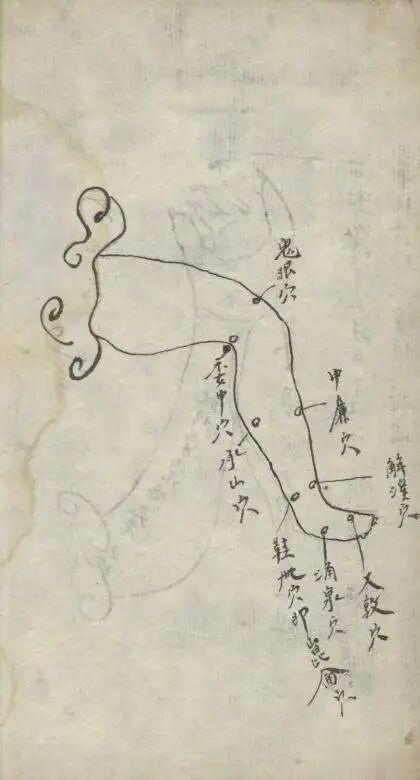 解溪穴
大敦穴
中廉穴
鬼眼穴
涌泉穴
鞋穴即崑
承山穴
委中穴